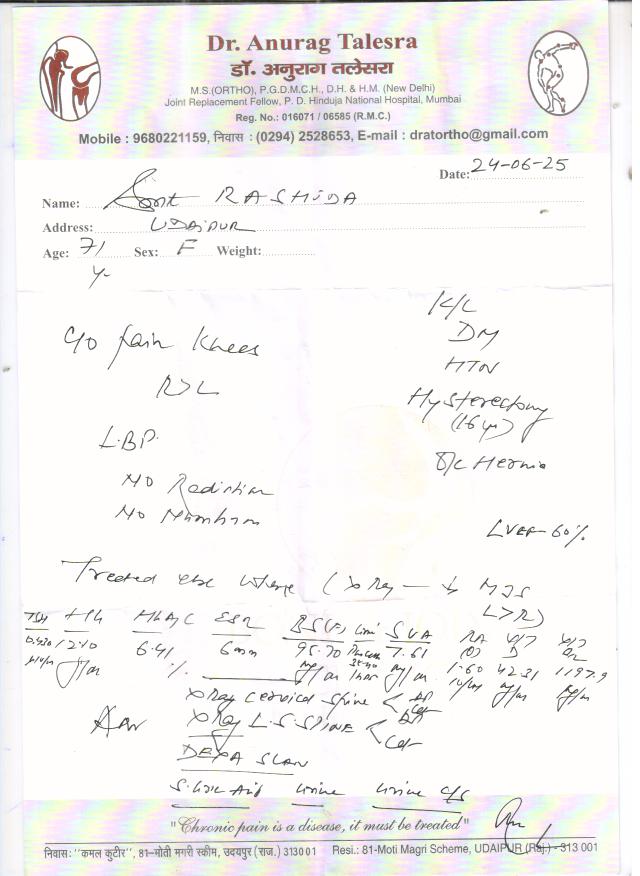 Dr. Anurag Talesra
डॉ. अनुराग तलेसरा
M.S.(ORTHO), P.G.D.M.C.H., D.H. & H.M. (New Delhi)
Joint Replacement Fellow, P. D. Hinduja National Hospital, Mumbai
Reg. No.: 016071 / 06585 (R.M.C.)
Mobile : 9680221159, निवास : (0294) 2528653, E-mail : dratortho@gmail.com
Date: 24-06-25
Name: Smt RASHIDA
Address: UDAIPUR
Age: 71 Sex: F Weight:
y
K/C
C/o Pain Knees
DM
HTN
R>L
Hysterectomy
(16 yr)
L.B.P.
O/C Hernia
No Radiation
No Numbness
LVEF-60%
Treated else where (X Ray — ↓ MJS
L>R)
TSH Hb HbA1C ESR BS(F) SUA RA
0.430 12.10 6.41 6mm 95.70 7.61 D
gm % 1.60 42.31 1197.9
X Ray Cervical Spine < AP
Adv X Ray L.S. SPINE <
DEXA SCAN
S. Uric Acid Urine Urine C/S
"Chronic pain is a disease, it must be treated"
निवास: "कमल कुटीर", 81–मोती मगरी स्कीम, उदयपुर (राज.) 313001 Resi.: 81-Moti Magri Scheme, UDAIPUR (Raj.) - 313 001